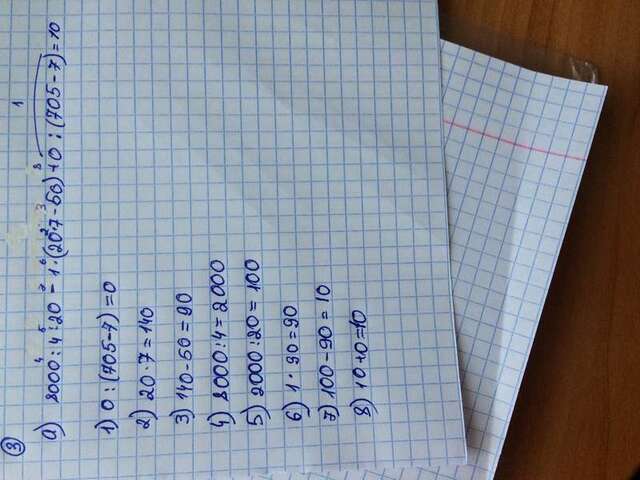 3
1
4 5 7 6 2 3 8
а) 8000 : 4 : 20 - 1 · (20 · 7 - 50) + 0 : (705 - 7) = 10
1) 0 : (705 - 7) = 0
2) 20 · 7 = 140
3) 140 - 50 = 90
4) 8000 : 4 = 2000
5) 2000 : 20 = 100
6) 1 · 90 = 90
7) 100 - 90 = 10
8) 10 + 0 = 10